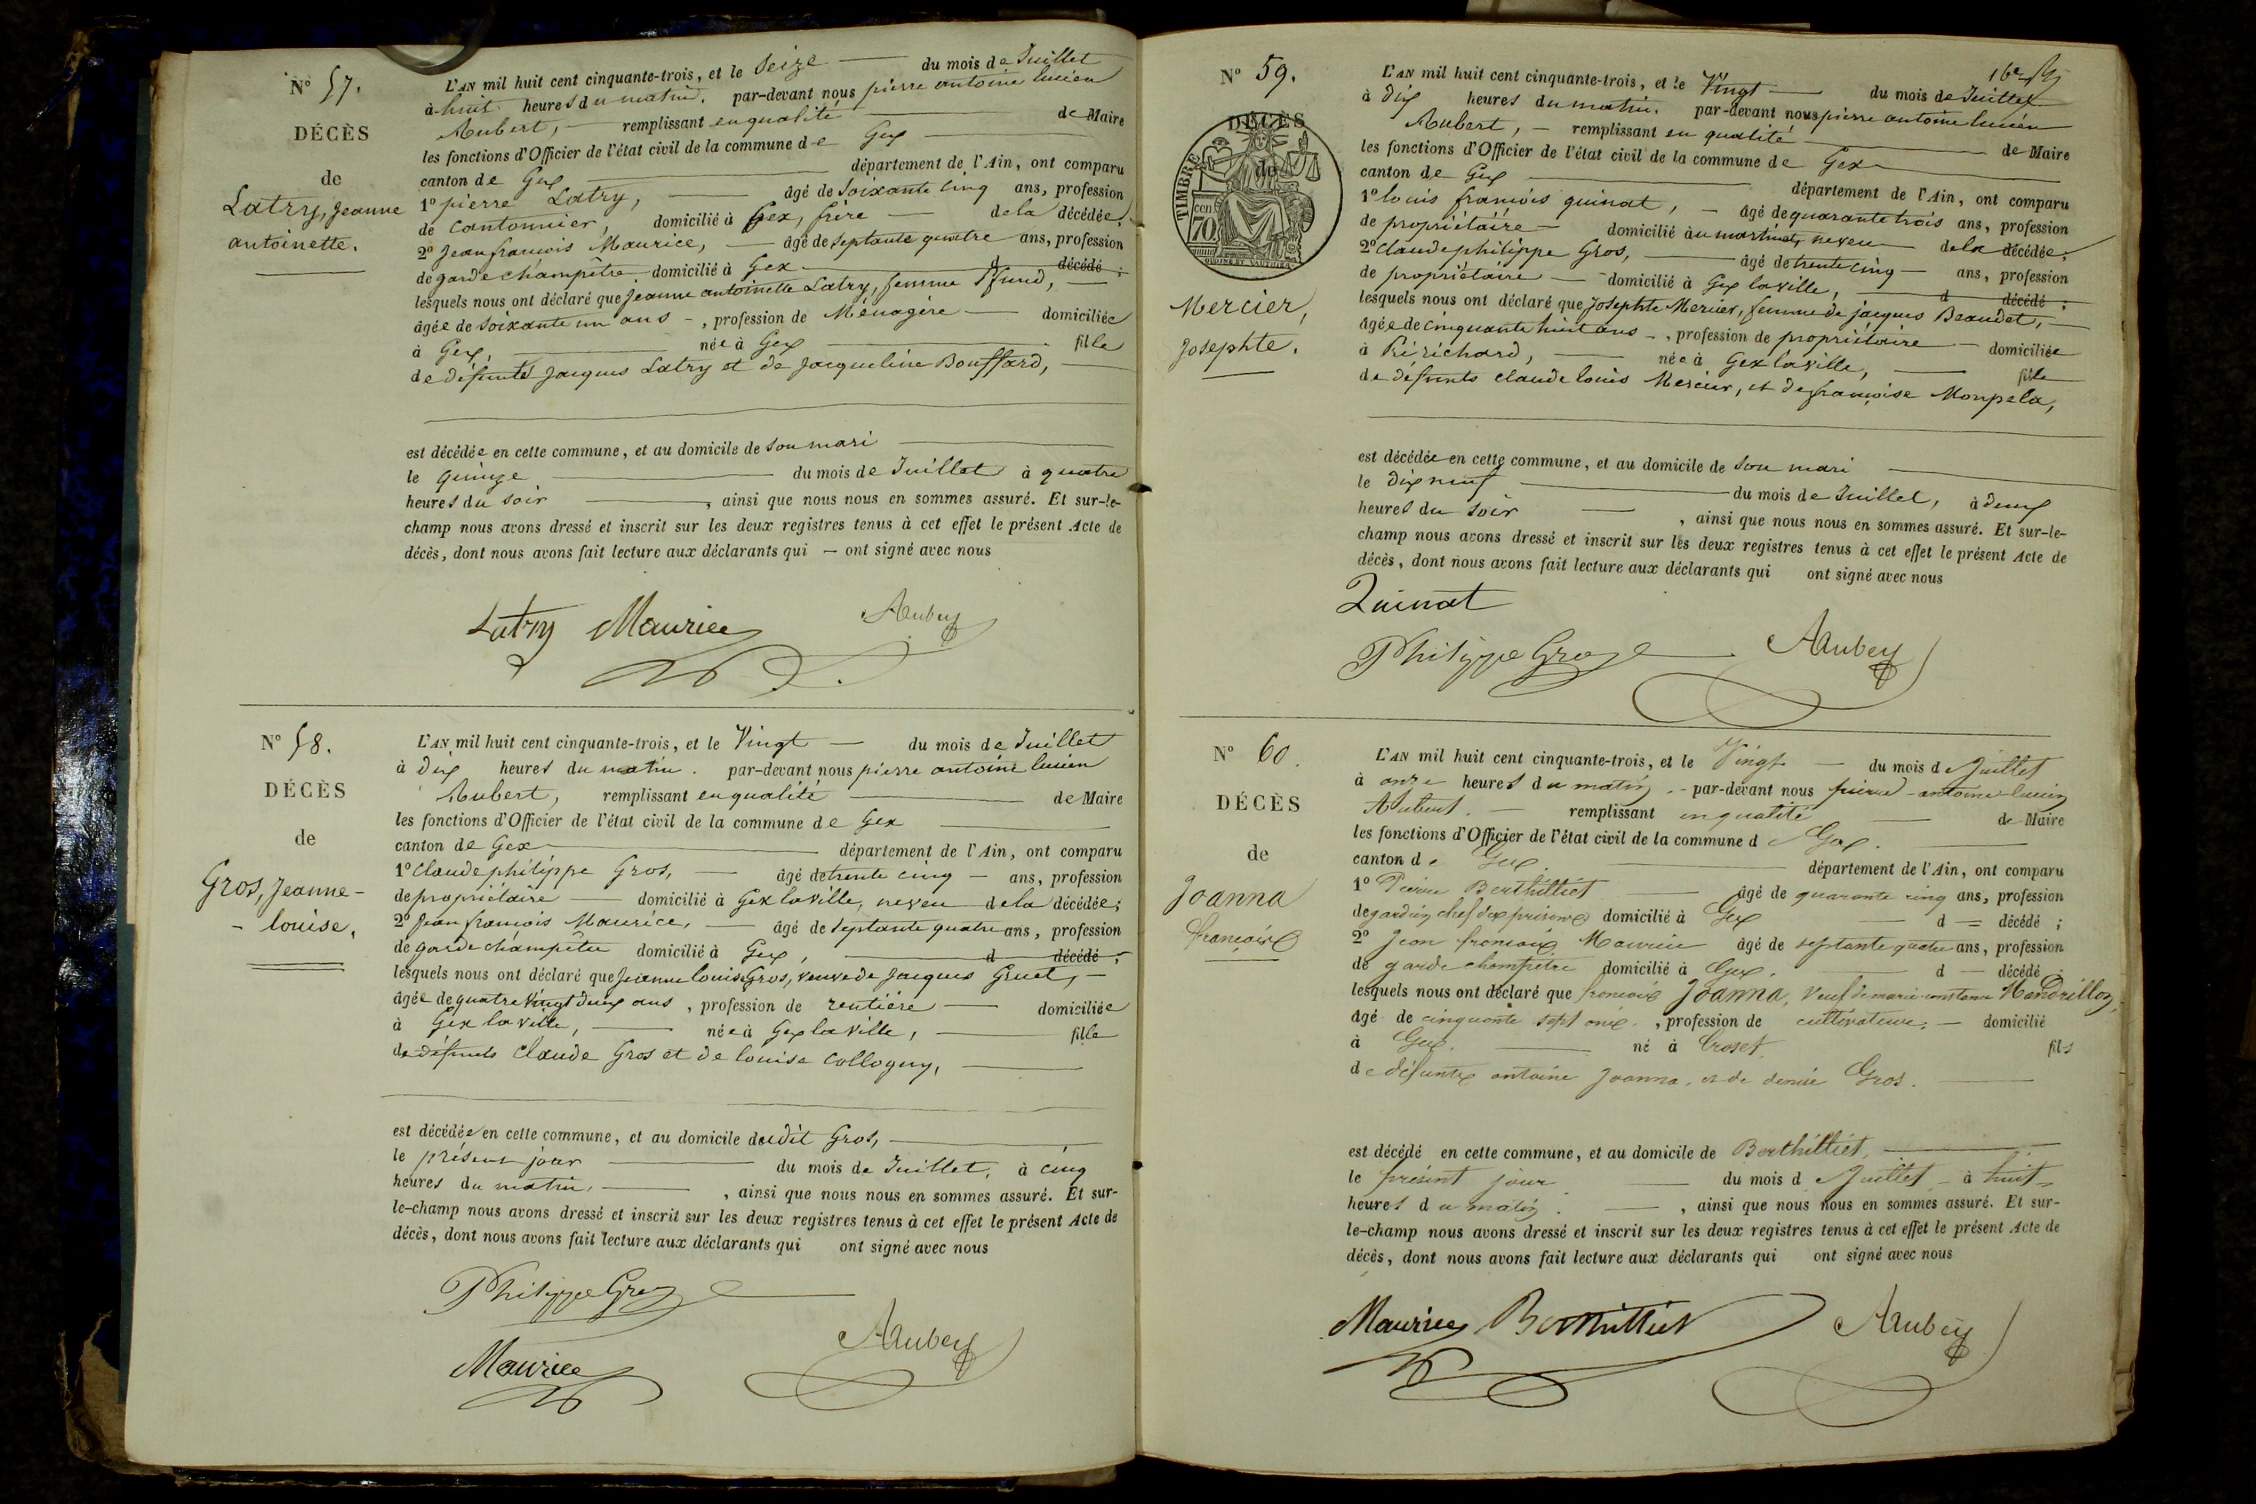 N° 57.
DÉCÈS
de
Latry, Jeanne
antoinette.
L'AN mil huit cent cinquante-trois, et le Seize du mois de Juillet
à huit heures du matin. par-devant nous pierre antoine lucien
Aubert, remplissant en qualité de Maire
les fonctions d'Officier de l'état civil de la commune de Gex
canton de Gex département de l'Ain, ont comparu
1° pierre Latry, âgé de soixante cinq ans, profession
de Cantonnier, domicilié à Gex, frère de la décédée;
2° Jean francois Maurice, âgé de septante quatre ans, profession
de garde champêtre domicilié à Gex d décédé ;
lesquels nous ont déclaré que jeanne antoinette Latry, femme Pfund,
âgée de soixante un ans -, profession de Ménagère domiciliée
à Gex, née à Gex fille
de défunts Jacques Latry et de Jacqueline Bouffard,
est décédée en cette commune, et au domicile de son mari
le quinze du mois de Juillet à quatre
heures du soir , ainsi que nous nous en sommes assuré. Et sur-le-
champ nous avons dressé et inscrit sur les deux registres tenus à cet effet le présent Acte de
décès, dont nous avons fait lecture aux déclarants qui - ont signé avec nous
Latry Maurice Aubert
N° 58.
DÉCÈS
de
Gros, Jeanne-
- louise.
L'AN mil huit cent cinquante-trois, et le Vingt du mois de Juillet
à dix heures du matin. par-devant nous pierre antoine lucien
Aubert, remplissant en qualité de Maire
les fonctions d'Officier de l'état civil de la commune de Gex
canton de Gex département de l'Ain, ont comparu
1° Claude philippe Gros, âgé de trente cinq ans, profession
de propriétaire domicilié à Gex la ville, neveu de la décédée;
2° Jean francois Maurice, âgé de septante quatre ans, profession
de garde champêtre domicilié à Gex, d décédé ;
lesquels nous ont déclaré que Jeanne louise Gros, veuve de Jacques Gruet,
âgée de quatre vingt deux ans, profession de rentière domiciliée
à Gex la ville, née à Gex la ville, fille
de défunts Claude Gros et de louise Collogny,
est décédée en cette commune, et au domicile dudit Gros,
le présent jour du mois de Juillet, à cinq
heures du matin. , ainsi que nous nous en sommes assuré. Et sur-
le-champ nous avons dressé et inscrit sur les deux registres tenus à cet effet le présent Acte de
décès, dont nous avons fait lecture aux déclarants qui ont signé avec nous
Philippe Gros
Maurice Aubert
N° 59.
DÉCÈS
de
TIMBRE
70
Mercier,
Josephte.
L'AN mil huit cent cinquante-trois, et le Vingt du mois de Juillet
à dix heures du matin. par-devant nous pierre antoine lucien
Aubert, - remplissant en qualité de Maire
les fonctions d'Officier de l'état civil de la commune de Gex
canton de Gex département de l'Ain, ont comparu
1° louis francois quinat, âgé de quarante trois ans, profession
de propriétaire domicilié au martinet, neveu de la décédée;
2° Claude philippe Gros, âgé de trente cinq ans, profession
de propriétaire domicilié à Gex la ville, d décédé ;
lesquels nous ont déclaré que Josephte Mercier, femme de jacques Beaudet,
âgée de cinquante huit ans -, profession de propriétaire domiciliée
à Pré richard, née à Gex la ville, fille
de défunts claude louis Mercier, et de françoise Monpela,
est décédée en cette commune, et au domicile de son mari
le dix neuf du mois de Juillet, à deux
heures du soir , ainsi que nous nous en sommes assuré. Et sur-le-
champ nous avons dressé et inscrit sur les deux registres tenus à cet effet le présent Acte de
décès, dont nous avons fait lecture aux déclarants qui ont signé avec nous
Quinat
Philippe Gros Aubert
N° 60.
DÉCÈS
de
Joanna
françois
L'AN mil huit cent cinquante-trois, et le Vingt du mois de Juillet
à onze heures du matin. - par-devant nous pierre-antoine-lucien
Aubert. remplissant en qualité de Maire
les fonctions d'Officier de l'état civil de la commune de Gex.
canton de Gex. département de l'Ain, ont comparu
1° Pierre Berthilliet âgé de quarante cinq ans, profession
de gardien chef des prisons domicilié à Gex d = décédé ;
2° Jean francois Maurice âgé de septante quatre ans, profession
de garde champêtre domicilié à Gex. d - décédé
lesquels nous ont déclaré que francois Joanna, veuf de marie constance Mandrillon,
âgé de cinquante sept ans, profession de cultivateur. domicilié
à Gex. né à Croset. fils
de défunts antoine Joanna, et de denise Gros.
est décédé en cette commune, et au domicile de Berthilliet,
le présent jour du mois d Juillet à huit
heures du matin. , ainsi que nous nous en sommes assuré. Et sur-
le-champ nous avons dressé et inscrit sur les deux registres tenus à cet effet le présent Acte de
décès, dont nous avons fait lecture aux déclarants qui ont signé avec nous
Maurice Berthilliet Aubert